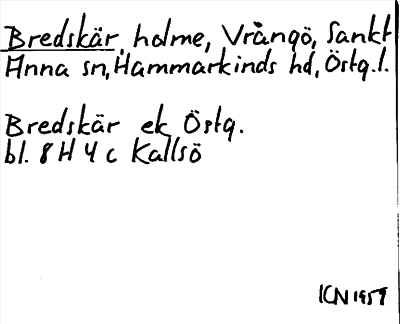 Bredskär, holme, Vrångö, Sankt
Anna sn, Hammarkinds hd, Östg.l.
Bredskär ek Östg.
bl. 8 H 4 c Kallsö
ICN 1959